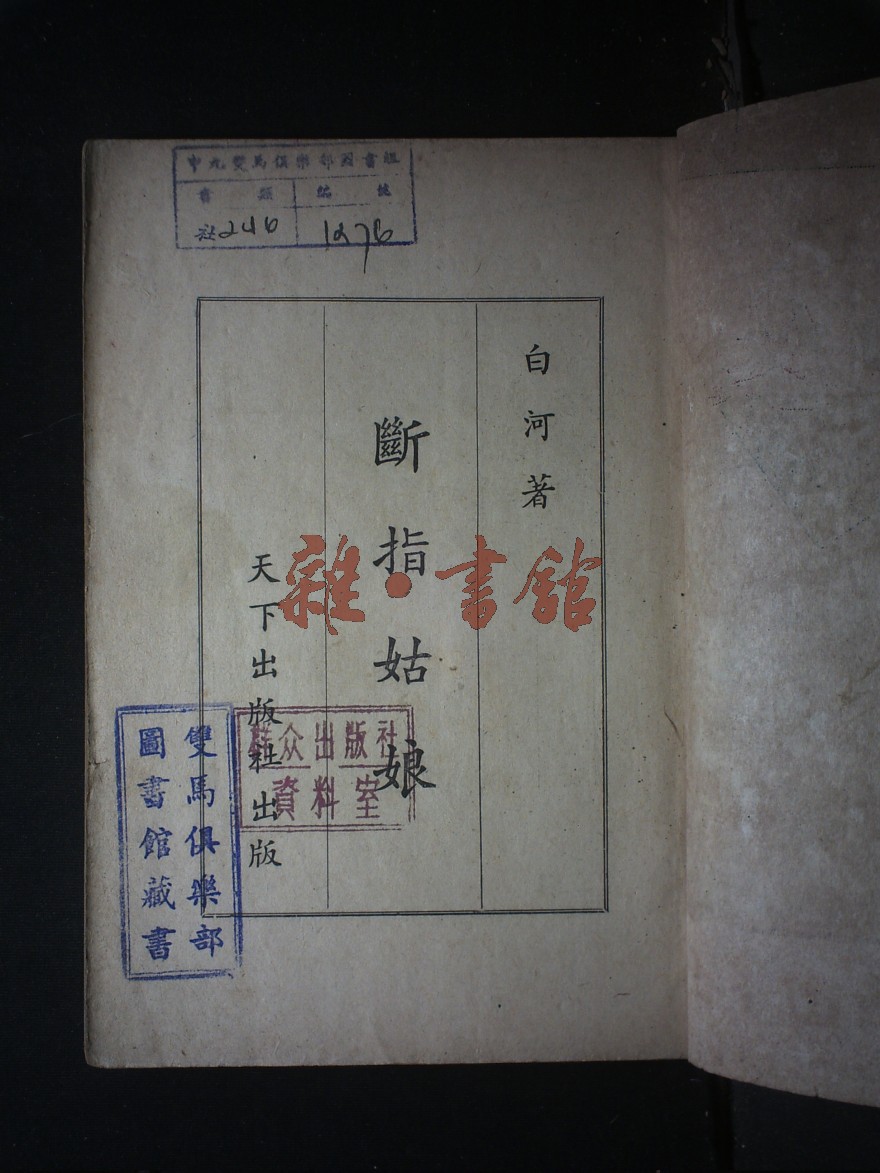 申九雙馬俱樂部圖書組
書類 編號
社246 1276
白河著
斷指姑娘
天下出版社出版
雜·書館
群众出版社
資料室
雙馬俱樂部
圖書館藏書